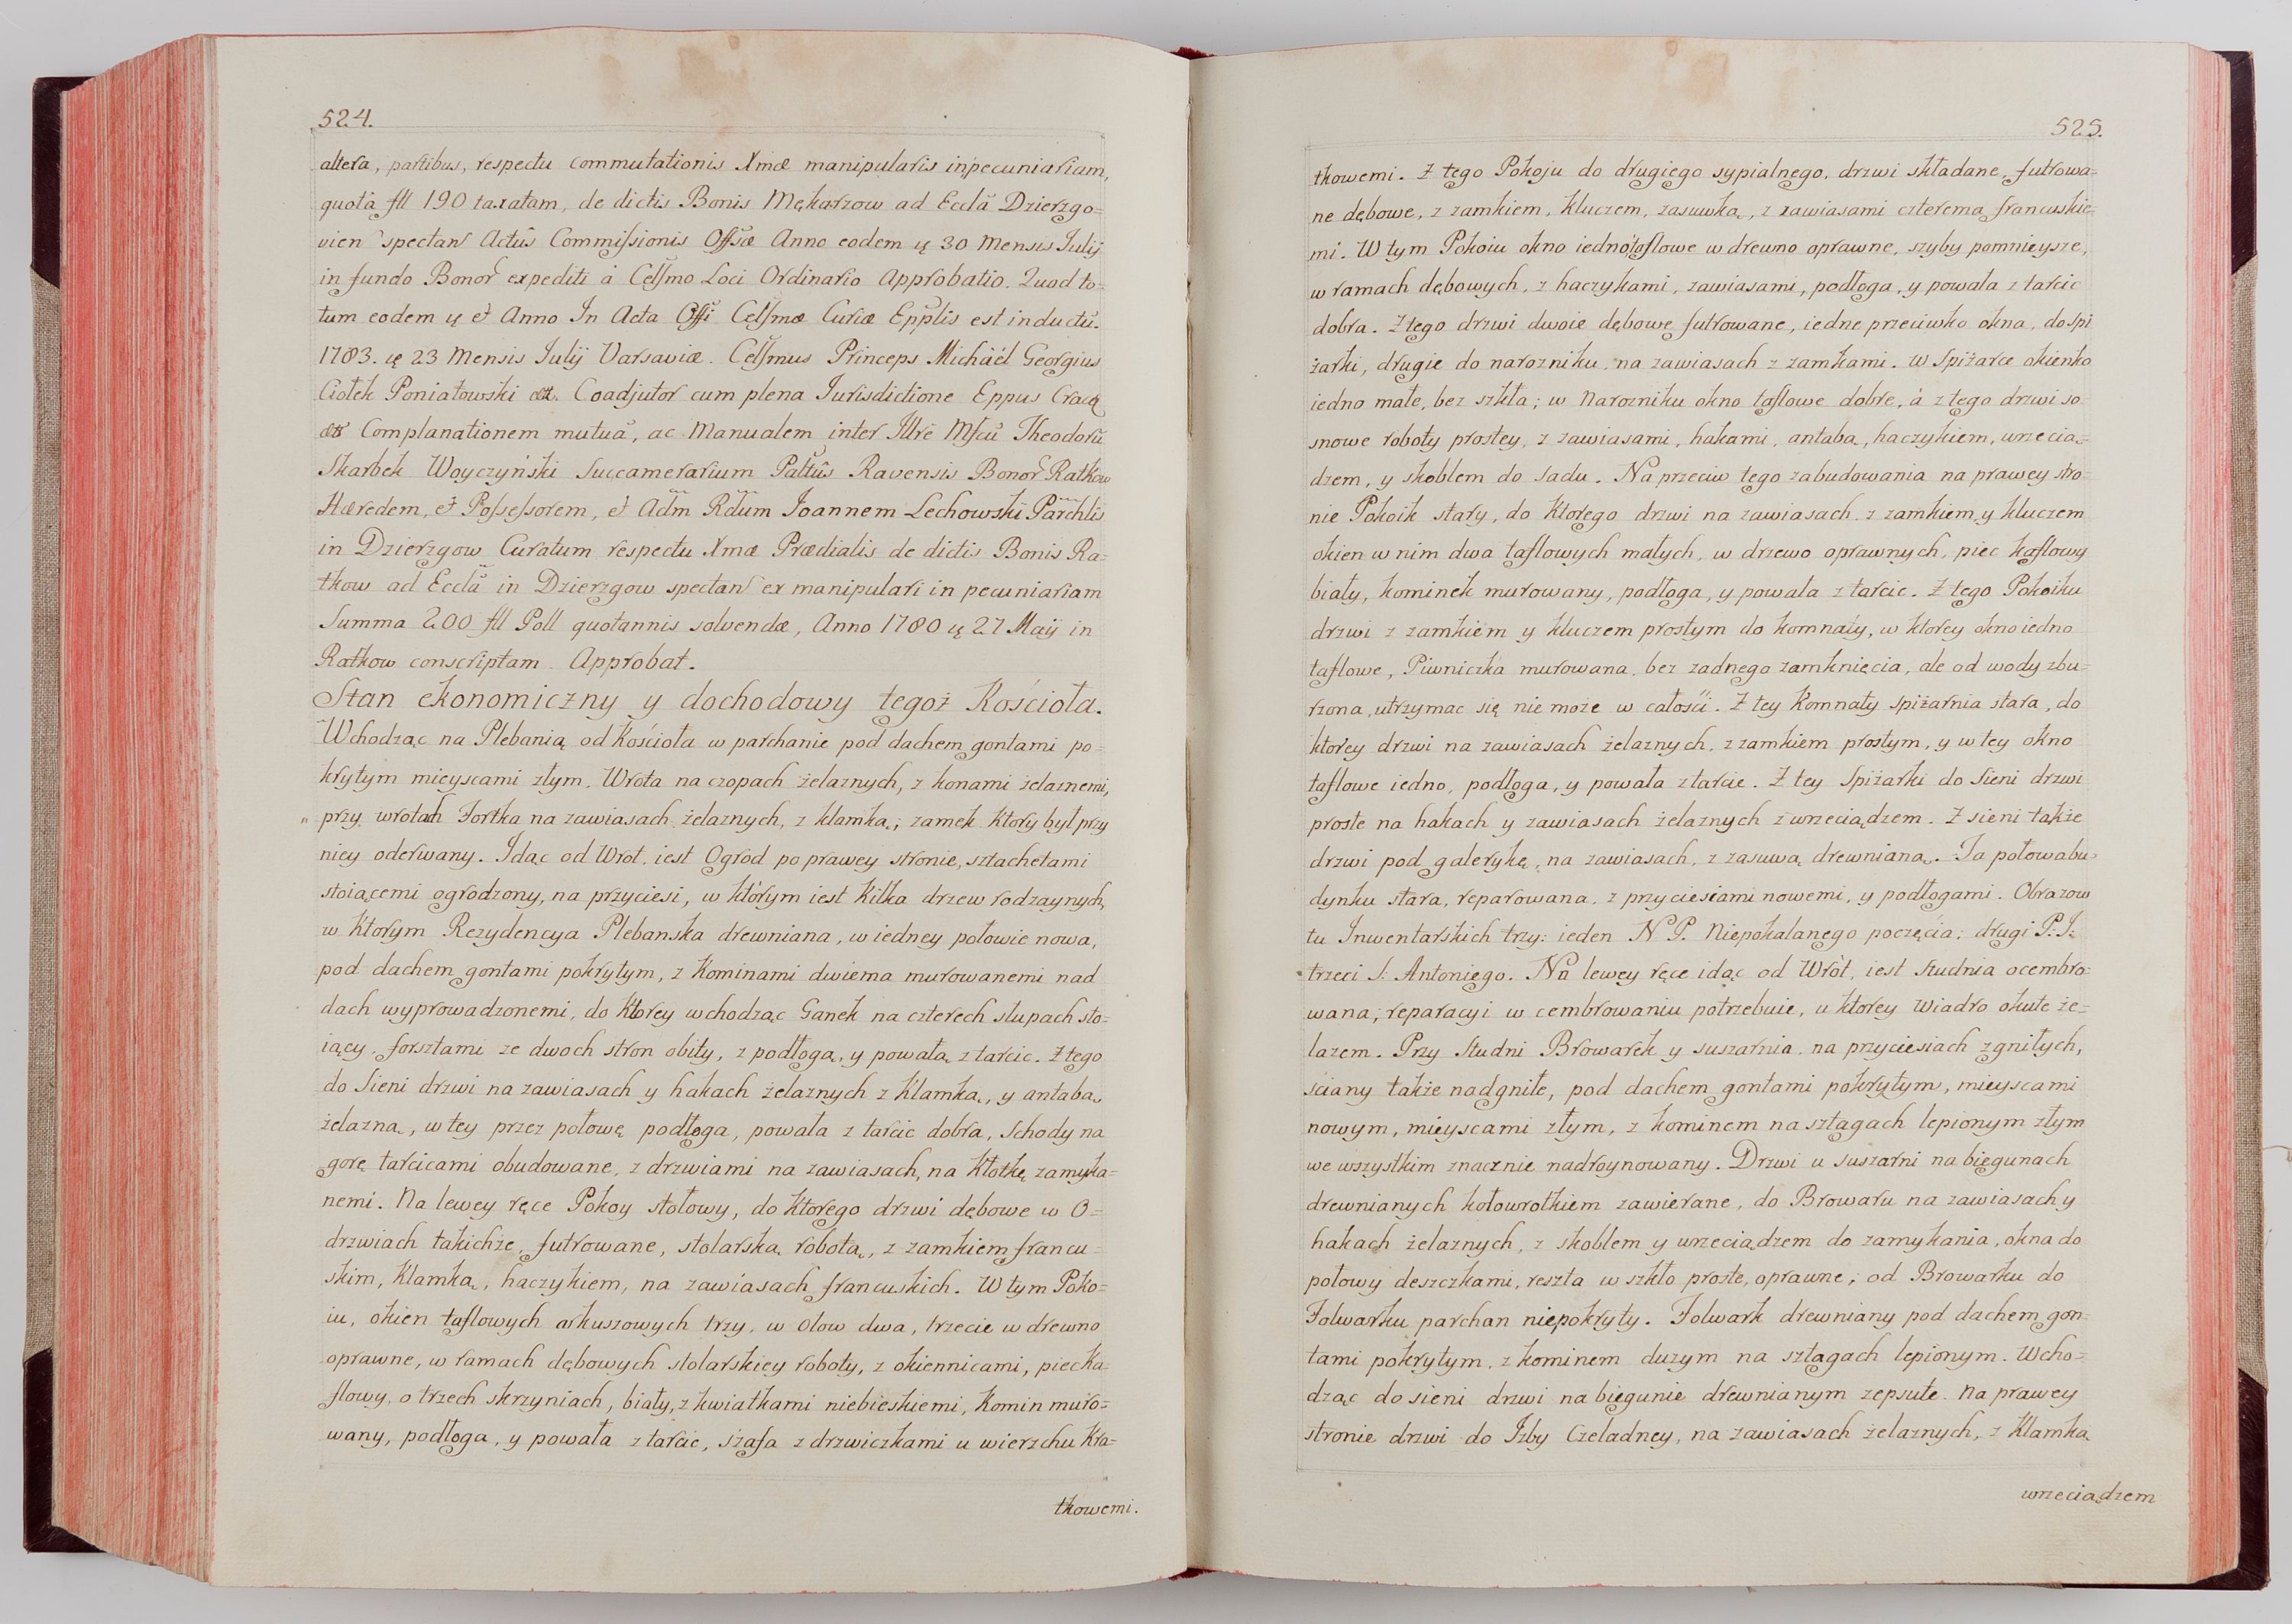 524.
altera, partibus, respectu commutationis Xmæ manipularis in pecuniariam,
quotâ fll 190 taxatam, de dictis Bonis Mękarzow ad Ecclã Dzierzgo=
vien spectan Actûs Commissionis Offsæ Anno eodem 30 Mensis Julij
in fundo Bonor expediti à Celsmo Loci Ordinario Approbatio. Quod to=
tum eodem et Anno In Acta Offi Celsmæ Curiæ Epplis est inductũ.
1783. 23 Mensis Julij Varsaviæ. Celsmus Princeps Michäél Georgius
Ciołek Poniatowski Coadjutor cum plena Jurisdictione Eppus Crac
Complanationem mutuã, ac Manualem inter Illrẽ Mfcũ Theodorũ
Skarbek Woyczyński Succamerarium Paltûs Ravensis Bonor Ratkow
Hæredem, et Possessorem, et Adm Rdum Joannem Lechowski Parchlis
in Dzierzgow Curatum respectu Xmæ Prædialis de dictis Bonis Ra=
tkow ad Ecclã in Dzierzgow spectan ex manipulari in pecuniariam
Summa 200 fll Poll quotannis solvendæ, Anno 1780 27 Maij in
Ratkow conscriptam Approbat.
Stan ekonomiczny y dochodowy tegoż Kościoła.
Wchodząc na Plebanią od Kościoła w parchanie pod dachem gontami po=
krytym mieyscami złym, Wrota na czopach żelaznych, z konami żelaznemi,
przy wrotach Fortka na zawiasach żelaznych, z klamką; zamek ktory był przy
niey oderwany. Idąc od Wrot, iest Ogrod po prawey stronie, sztachetami
stoiącemi ogrodzony, na przyciesi, w którym iest kilka drzew rodzaynych,
w ktorym Rezydencya Plebanska drewniana, w iedney połowie nowa,
pod dachem gontami pokrytym, z Kominami dwiema murowanemi nad
dach wyprowadzonemi, do ktorey wchodząc Ganek na czterech słupach sto=
iący, forsztami ze dwoch stron obity, z podłogą, y powałą z tarcic. Z tego
do Sieni drzwi na zawiasach y hakach żelaznych z klamką, y antabą
żelazną, w tey przez połowę podłoga, powała z tarcic dobra, Schody na
gorę tarcicami obudowane, z drzwiami na zawiasach, na kłotkę zamyka=
nemi. Na lewey ręce Pokoy stołowy, do ktorego drzwi dębowe w O=
drzwiach takichże, futrowane, stolarską robotą, z zamkiem francu=
skim, klamką, haczykiem, na zawiasach francuskich. W tym Poko=
iu, okien taflowych arkuszowych trzy, w ołow dwa, trzecie w drewno
oprawne, w ramach dębowych stolarskiey roboty, z okiennicami, piec ka=
flowy, o trzech skrzyniach, biały, z kwiatkami niebieskiemi, Komin muro=
wany, podłoga, y powała z tarcic, szafa z drzwiczkami u wierzchu kra=
tkowemi.
525.
tkowemi. Z tego Pokoju do drugiego sypialnego, drzwi składane, futrowa=
ne dębowe, z zamkiem, kluczem, zasuwką, z zawiasami czterema francuskie=
mi. W tym Pokoiu okno iedno taflowe w drewno oprawne, szyby pomnieysze,
w ramach dębowych, z haczykami, zawiasami, podłoga, y powała z tarcic
dobra. Z tego drzwi dwoie dębowe futrowane, iedne przeciwko okna, do spi
żarki, drugie do narozniku, na zawiasach z zamkami. W Spiżarce okienko
iedno małe, bez szkła; w Narozniku okno taflowe dobre, à z tego drzwi so=
snowe roboty prostey, z zawiasami, hakami, antabą, haczykiem, wrzecią=
dzem, y skoblem do Sadu. Na przeciw tego zabudowania na prawey stro=
nie Pokoik stary, do ktorego drzwi na zawiasach, z zamkiem y kluczem
okien w nim dwa taflowych małych, w drzewo oprawnych, piec kaflowy
biały, kominek murowany, podłoga, y powała z tarcic. Z tego Pokoiku
drzwi z zamkiem y kluczem prostym do komnaty, w ktorey okno iedno
taflowe, Piwniczka murowana, bez zadnego zamknięcia, ale od wody zbu=
rzona, utrzymac się nie może w całości. Z tey Komnaty spiżarnia stara, do
ktorey drzwi na zawiasach żelaznych, z zamkiem prostym, y w tey okno
taflowe iedno, podłoga, y powała z tarcic. Z tey Spiżarki do Sieni drzwi
proste na hakach y zawiasach żelaznych z wrzeciądzem. Z sieni także
drzwi pod galerykę, na zawiasach, z zasuwą drewnianą. Ta połowa bu=
dynku stara, reparowana, z przyciesiami nowemi, y podłogami. Obrazow
tu Inwentarskich trzy: ieden N P. Niepokalanego poczęcia; drugi P: J:
trzeci S: Antoniego. Na lewey ręce idąc od Wròt, iest Studnia ocembro=
wana, reparacyi w cembrowaniu potrzebuie, u ktorey Wiadro okute że=
lazem. Przy Studni Browarek y suszarnia, na przyciesiach zgniłych,
ściany także nadgniłe, pod dachem gontami pokrytym, mieyscami
nowym, mieyscami złym, z kominem na sztagach lepionym złym
we wszystkim znacznie nadroynowany. Drzwi u suszarni na biegunach
drewnianych kołowrotkiem zawierane, do Browaru na zawiasach y
hakach żelaznych, z skoblem y wrzeciądzem do zamykania, okna do
połowy deszczkami, reszta w szkło proste, oprawne; od Browarku do
Folwarku parchan niepokryty. Folwark drewniany pod dachem gon=
tami pokrytym, z kominem duzym na sztagach lepionym. Wcho=
dząc do sieni drzwi na biegunie drewnianym zepsute. Na prawey
stronie drzwi do Izby Czeladney, na zawiasach żelaznych, z klamką
wrzeciądzem